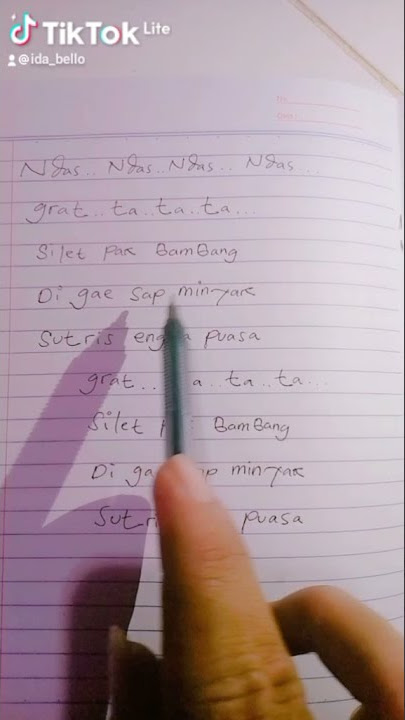 TikTok Lite
@ida_bello
No
Date
Ndas.. Ndas.. Ndas.. Ndas...
grat.. ta.. ta.. ta...
Silet Pak BamBang
Di gae Sap minyak
Sutris puasa
grat.. ta.. ta...
Silet BamBang
Di minyak
puasa